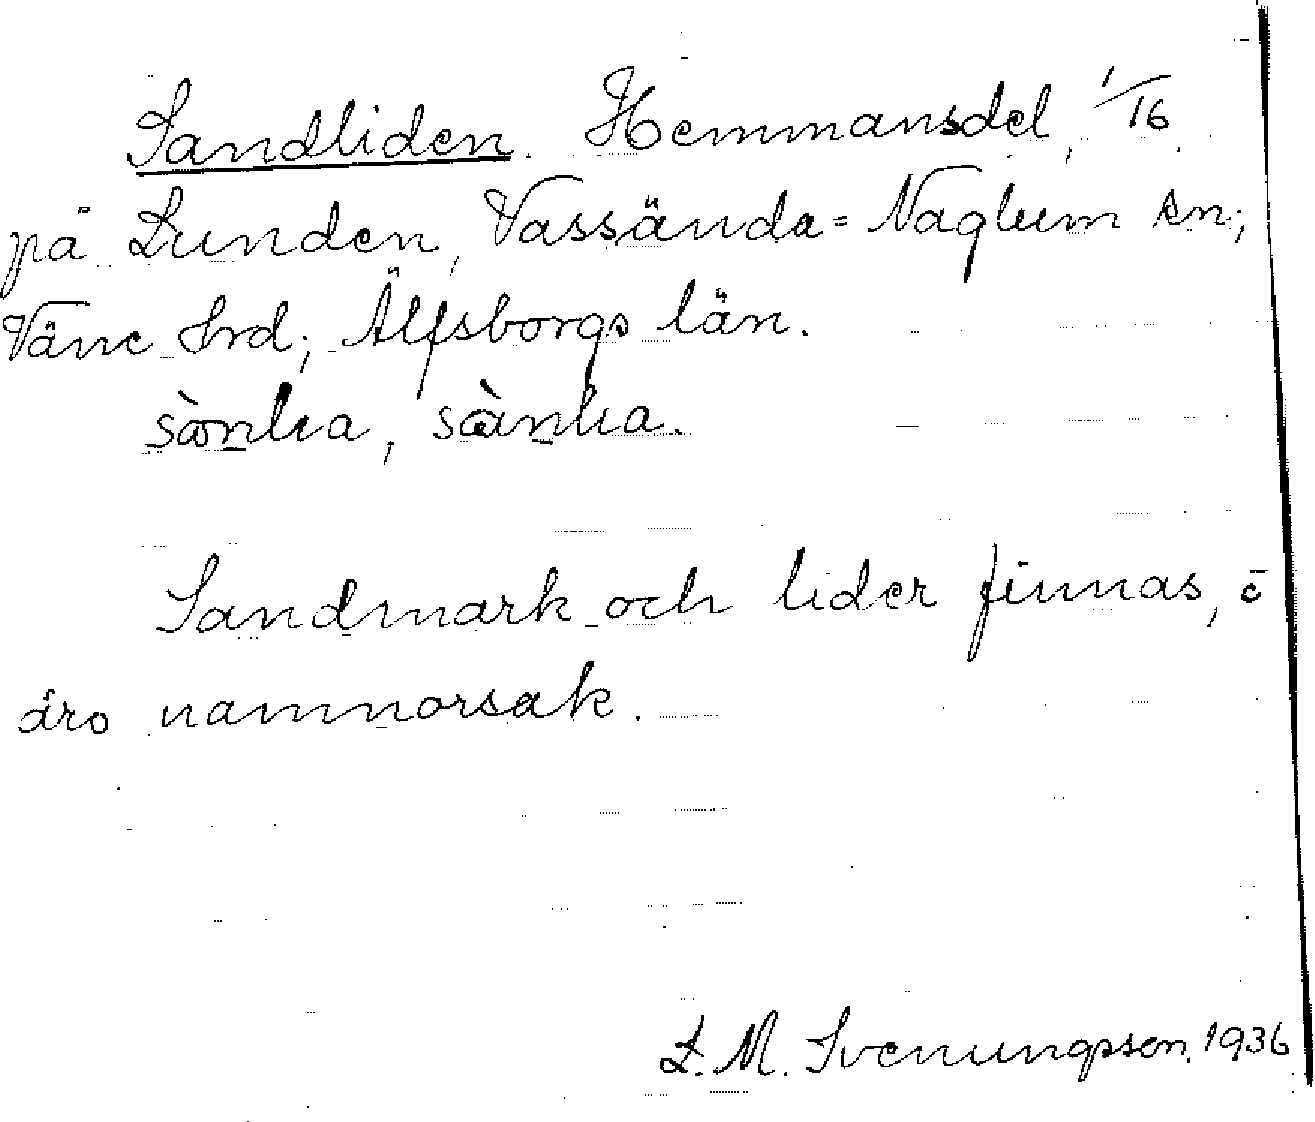 Sandliden. Hemmansdel, 1/16
på Lunden, Vassända=Naglum sn;
Väne hrd; Älfsborgs län.
sànlıa, sànlıa.
Sandmark och lider finnas, o
äro namnorsak.
L. M. Svenungsson, 1936